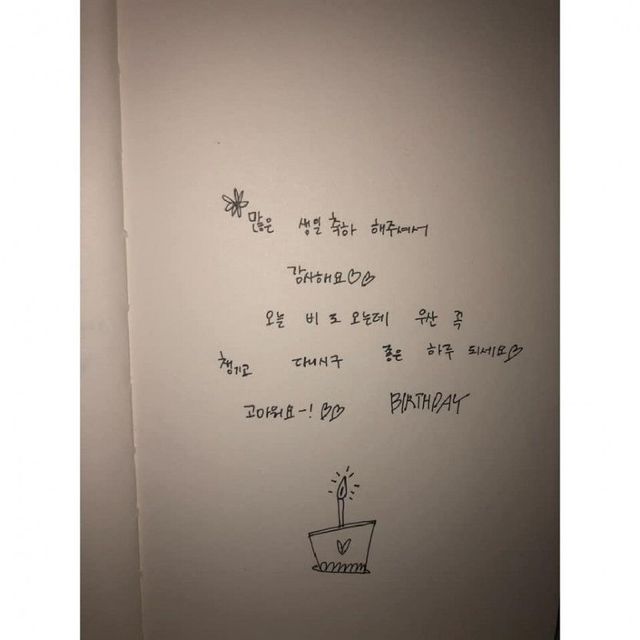 많은 생일 축하 해주셔서
감사해요♡♡
오늘 비 도 오는데 우산 꼭
챙기고 다니시구 좋은 하루 되세요♡
고마워요-! ♡♡ BIRTHDAY